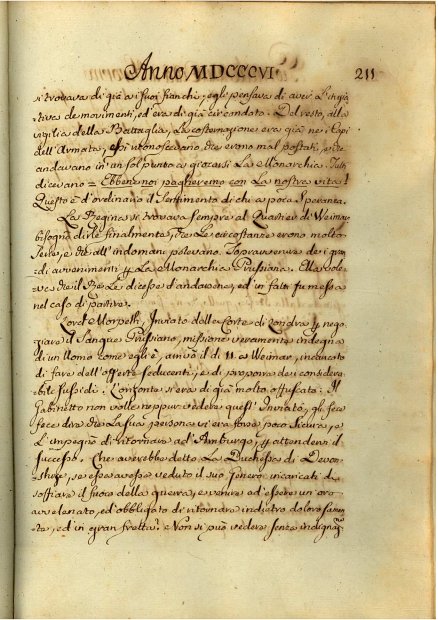 Anno MDCCCVI. 211
si trovava di già a i suoi fianchi; egli pensava di aver l'inizia
tiva de movimenti, ed era di già circondato. Del resto, alla
vigilia della Battaglia, la costernazione era già ne i Capi
dell'Armata, essi riconoscevano, che erano mal postati, e che
andavano in un sol punto a giocarsi la Monarchia. Tutti
dicevano = Ebbene noi pagheremo con la nostra vita!
Questo è d'ordinario il sentimento di chi a poca speranza.
La Regina si trovava sempre al Quartier di Weimar
bisognò dirle finalmente, che le circostanze erano molto
serie, e che all'indomani potevano sopravvenire de i gran
di avvenimenti p. la Monarchia Prussiana. Ella vole
va che il Re le dicesse d'andarsene, ed in fatti fu messa
nel caso di partire.
Lord Morpeth, Inviato dalla Corte di Londra p. nego
ziare il Sangue Prussiano, missione veramente indegna
di un Uomo come egli è, arrivò il dì 11. a Weimar, incaricato
di fare dell'offerte seducenti, e di proporre dei considera
bili sussidi. L'orizonte si era di già molto offuscato. Il
Gabinetto non volle neppur vedere quest'Inviato, gli fece
fece dire che la sua persona vi era forse poco sicura, e
l'impegnò di ritornare ad Amburgo, p. attendervi il
successo. Che averebbe detto la Duchessa di Devon-
shire, se essa avesse veduto il suo Genero incaricato di
soffiare il fuoco della guerra, e venire ad offrire un oro
avvelenato, ed obbligato di ritornare indietro dolorosamen
te, ed in gran fretta? Non si può vedere senza indignaz.